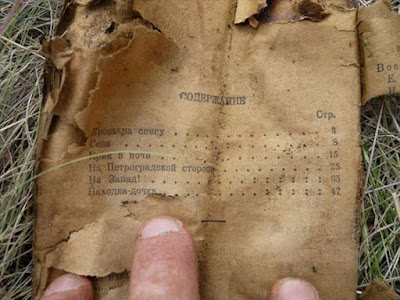 СОДЕРЖАНИЕ
Стр.
Кровь на снегу . . . . . . . . . . 3
Сева . . . . . . . . . . 8
Крик в ночи . . . . . . . . . . 15
На Петроградской стороне . . . . . . 25
На Запад! . . . . . . . . . . 35
Находка-дочка . . . . . . . . . . 47